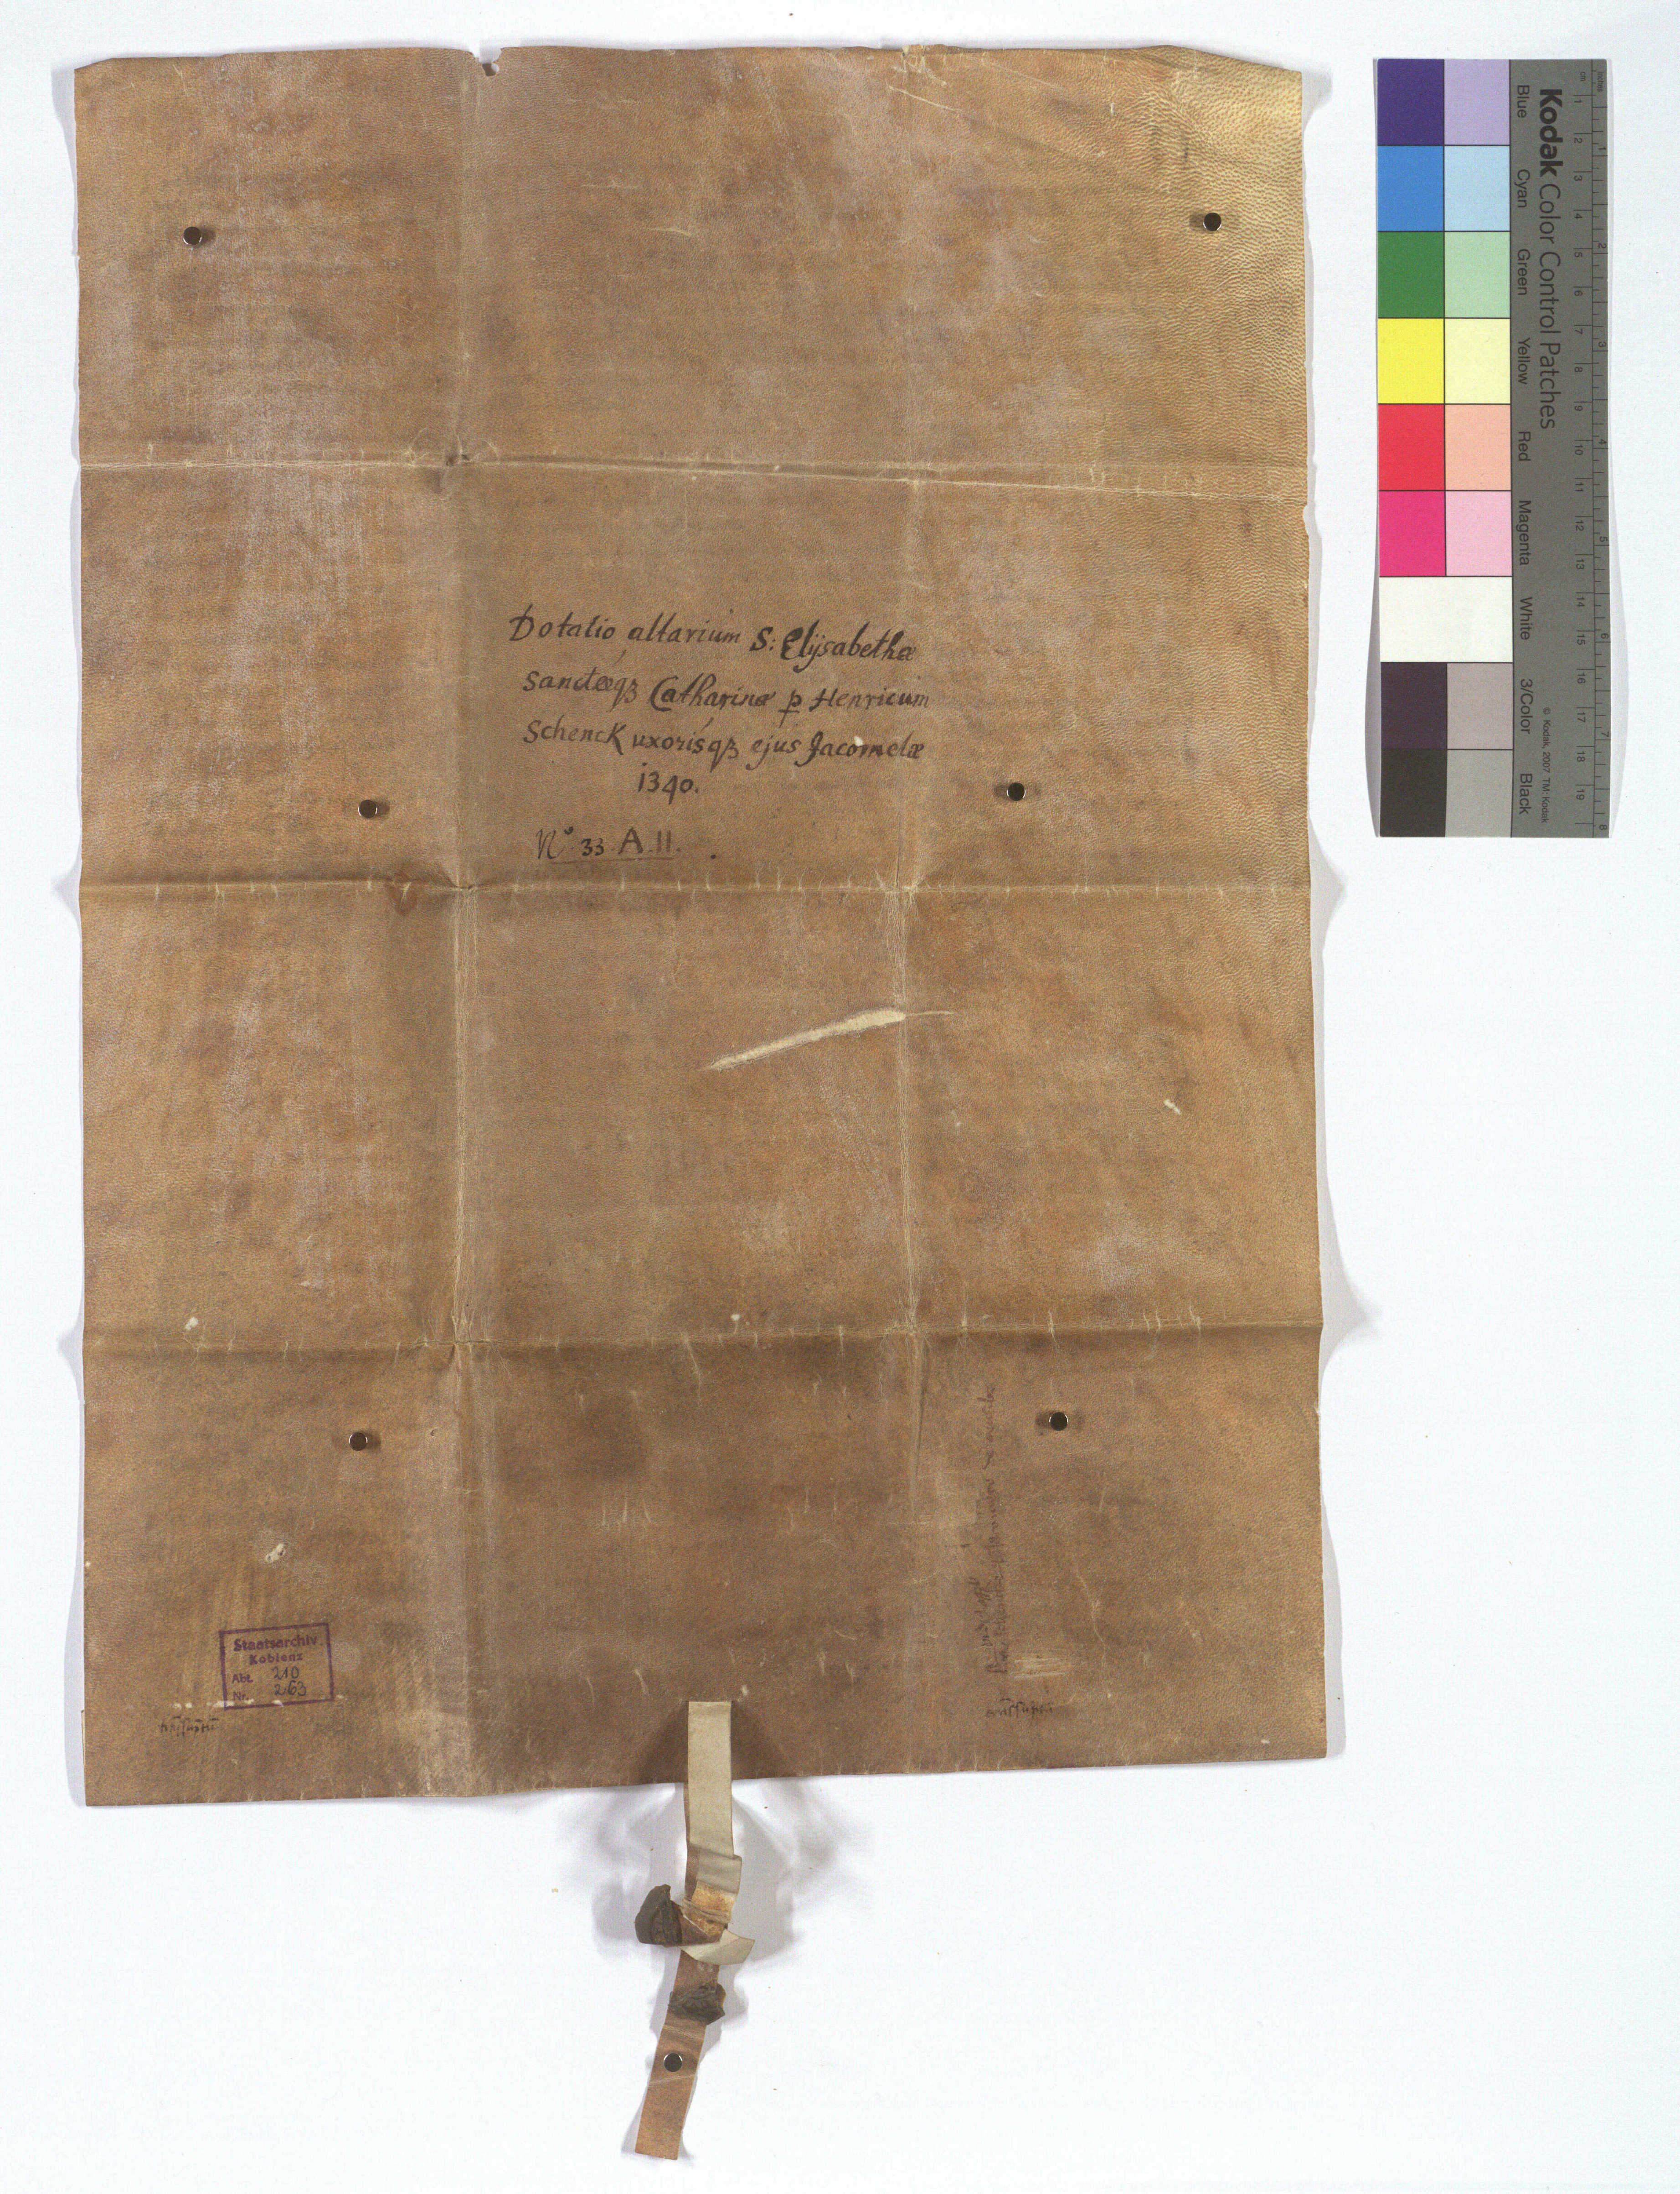 Dotatio altarium S: Elÿsabethæ
Sanctæqȝ Catharinæ p Henricum
Schenck uxorisqȝ ejus Jacomelæ
1340.
N° 33. A. 11.
Staatsarchiv
Koblenz
Abt. 210
Nr. 263
Kodak Color Control Patches
Blue Cyan Green Yellow Red Magenta White 3/Color Black
© Kodak, 2007 TM: Kodak
cm 1 2 3 4 5 6 7 8 9 10 11 12 13 14 15 16 17 18 19
inches 1 2 3 4 5 6 7 8